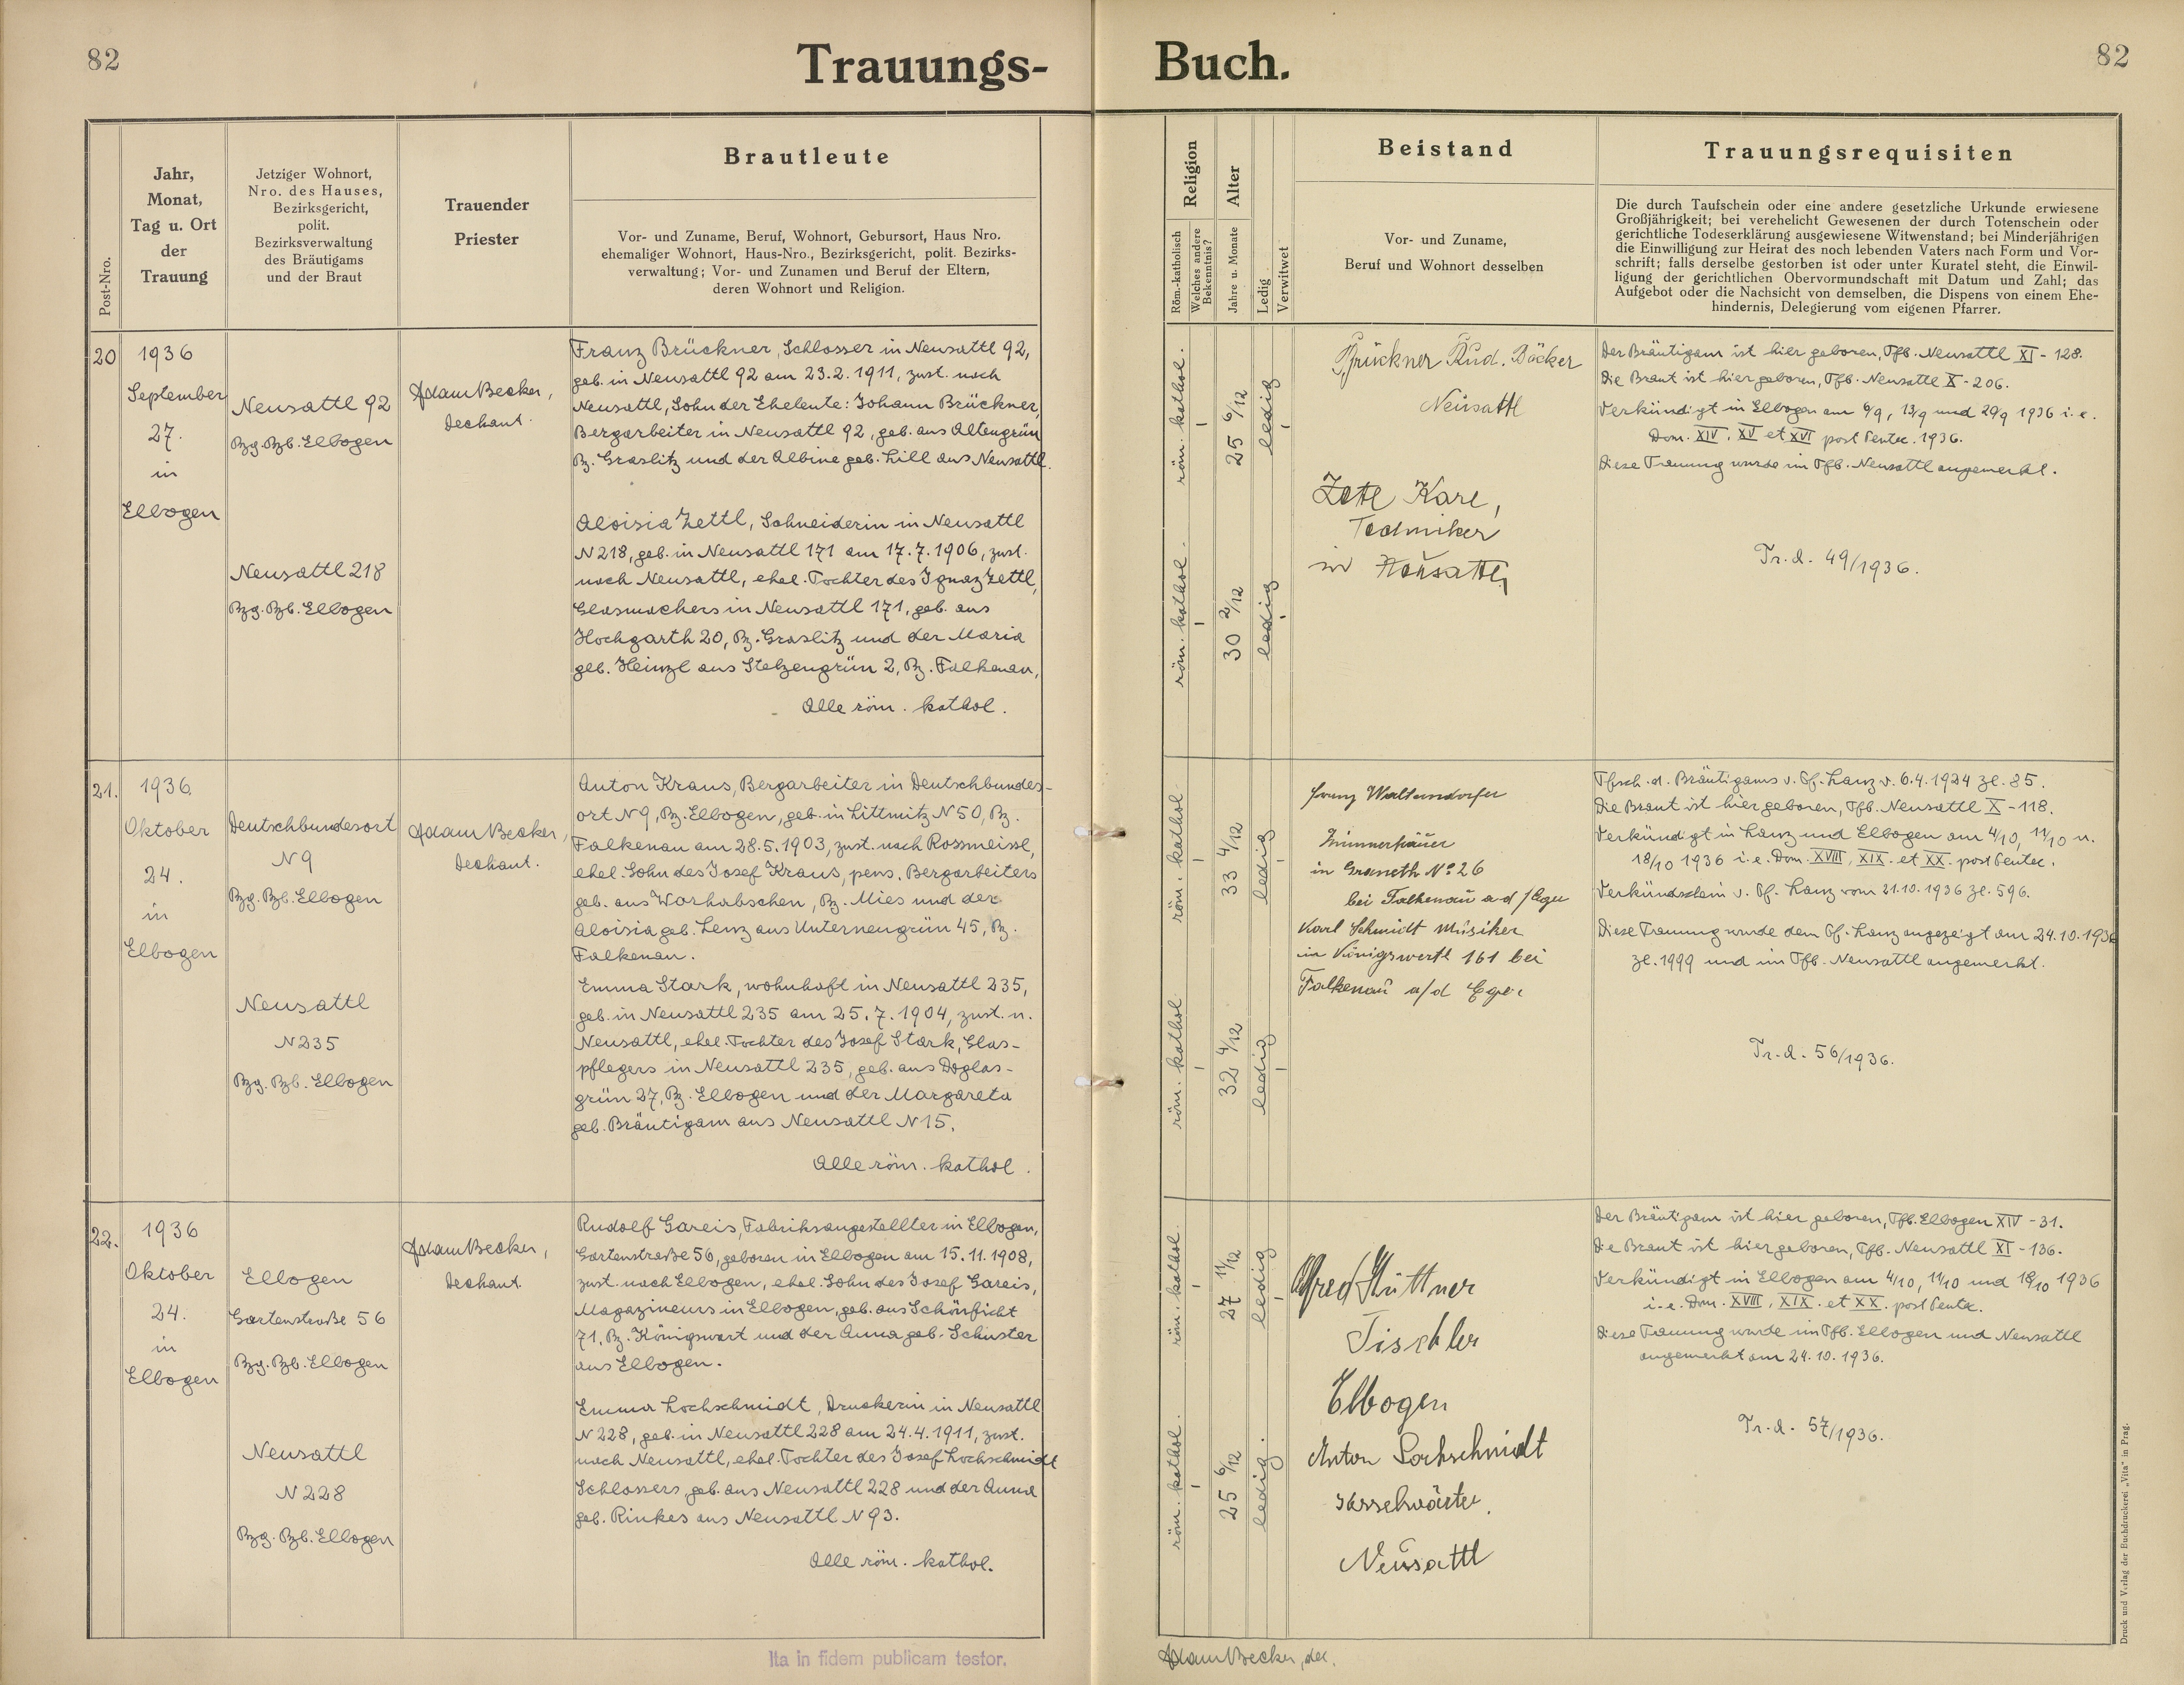 82
Trauungs-
Buch.
82
Post-Nro.
Jahr,
Monat,
Tag u. Ort
der
Trauung
Jetziger Wohnort,
Nro. des Hauses,
Bezirksgericht,
polit.
Bezirksverwaltung
des Bräutigams
und der Braut
Trauender
Priester
Brautleute
Vor- und Zuname, Beruf, Wohnort, Gebursort, Haus Nro.
ehemaliger Wohnort, Haus-Nro., Bezirksgericht, polit. Bezirks-
verwaltung; Vor- und Zunamen und Beruf der Eltern,
deren Wohnort und Religion.
Religion
Röm.-katholisch
Welches andere
Bekenntnis?
Alter
Jahre u. Monate
Ledig
Verwitwet
Beistand
Vor- und Zuname,
Beruf und Wohnort desselben
Trauungsrequisiten
Die durch Taufschein oder eine andere gesetzliche Urkunde erwiesene
Großjährigkeit; bei verehelicht Gewesenen der durch Totenschein oder
gerichtliche Todeserklärung ausgewiesene Witwenstand; bei Minderjährigen
die Einwilligung zur Heirat des noch lebenden Vaters nach Form und Vor-
schrift; falls derselbe gestorben ist oder unter Kuratel steht, die Einwil-
ligung der gerichtlichen Obervormundschaft mit Datum und Zahl; das
Aufgebot oder die Nachsicht von demselben, die Dispens von einem Ehe-
hindernis, Delegierung vom eigenen Pfarrer.
20
1936
September
27.
in
Elbogen
Neusattl 92
Bzg. Bzb. Elbogen
Neusattl 218
Bzg. Bzb. Elbogen
Adam Becker,
Dechant.
Franz Brückner, Schlosser in Neusattl 92,
geb. in Neusattl 92 am 23.2.1911, zust. nach
Neusattl, Sohn der Eheleute: Johann Brückner,
Bergarbeiter in Neusattl 92, geb. aus Altengrün
Bz. Graslitz und der Albine geb. Lill aus Neusattl.
Aloisia Zettl, Schneiderin in Neusattl
N 218, geb. in Neusattl 171 am 17.7.1906, zust.
nach Neusattl, ehel. Tochter des Ignaz Zettl,
Glasmachers in Neusattl 171, geb. aus
Hochgarth 20, Bz. Graslitz und der Maria
geb. Heinzl aus Stelzengrün 2, Bz. Falkenau,
Alle röm. kathol.
röm. kathol.
25 6/12
ledig
röm. kathol.
30 2/12
ledig
Brückner Rud. Bäcker
Neusattl
Zettl Karl,
Techniker
in Neusattl
Der Bräutigam ist hier geboren, Tfb. Neusattl XI - 128.
Die Braut ist hier geboren, Tfb. Neusattl X - 206.
Verkündigt in Elbogen am 6/9, 13/9 und 20/9 1936 i.e.
Dom. XIV, XV et XVI post Pentec. 1936.
Diese Trauung wurde im Tfb. Neusattl angemerkt.
Tr. d. 49/1936.
21.
1936
Oktober
24.
in
Elbogen
Deutschbundesort
N 9
Bzg. Bzb. Elbogen
Neusattl
N 235
Bzg. Bzb. Elbogen
Adam Becker,
Dechant.
Anton Kraus, Bergarbeiter in Deutschbundes-
ort N 9, Bz. Elbogen, geb. in Littmitz N 50, Bz.
Falkenau am 28.5.1903, zust. nach Rossmeissl,
ehel. Sohn des Josef Kraus, pens. Bergarbeiters
geb. aus Worhabschen, Bz. Mies und der
Aloisia geb. Lenz aus Unterneugrün 45, Bz.
Falkenau.
Emma Stark, wohnhaft in Neusattl 235,
geb. in Neusattl 235 am 25.7.1904, zust. n.
Neusattl, ehel. Tochter des Josef Stark, Glas-
pflegers in Neusattl 235, geb. aus Doglas-
grün 27, Bz. Elbogen und der Margareta
geb. Bräutigam aus Neusattl N 15.
Alle röm. kathol.
röm. kathol.
33 4/12
ledig
röm. kathol.
32 4/12
ledig
Franz Waltersdorfer
Zimmerhäuer
in Graneth No 26
bei Falkenau a.d/Eger
Karl Schmidt Musiker
in Königswerth 161 bei
Falkenau a/d Eger
Tfsch. d. Bräutigams v. Pf. Lanz v. 6.4.1924 Zl. 85.
Die Braut ist hier geboren, Tfb. Neusattl X - 118.
Verkündigt in Lanz und Elbogen am 4/10, 11/10 u.
18/10 1936 i.e. Dom. XVIII, XIX. et XX. post Pentec.
Verkündschein v. Pf. Lanz vom 21.10.1936 Zl. 596.
Diese Trauung wurde dem Pf. Lanz angezeigt am 24.10.1936
Zl. 1999 und im Tfb. Neusattl angemerkt.
Tr. d. 56/1936.
22.
1936
Oktober
24.
in
Elbogen
Elbogen
Gartenstraße 56
Bzg. Bzb. Elbogen
Neusattl
N 228
Bzg. Bzb. Elbogen
Adam Becker,
Dechant.
Rudolf Gareis, Fabriksangestellter in Elbogen,
Gartenstraße 56, geboren in Elbogen am 15.11.1908,
zust. nach Elbogen, ehel. Sohn des Josef Gareis,
Magazineurs in Elbogen, geb. aus Schönficht
71, Bz. Königswart und der Anna geb. Schuster
aus Elbogen.
Emma Lochschmidt, Druckerin in Neusattl
N 228, geb. in Neusattl 228 am 24.4.1911, zust.
nach Neusattl, ehel. Tochter des Josef Lochschmidt
Schlossers, geb. aus Neusattl 228 und der Anna
geb. Rinkes aus Neusattl N 93.
Alle röm. kathol.
röm. kathol.
27 11/12
ledig
röm. kathol.
25 6/12
ledig.
Alfred Hüttner
Tischler
Elbogen
Anton Lochschmidt
Kesselwärter.
Neusattl
Der Bräutigam ist hier geboren, Tfb. Elbogen XIV - 31.
Die Braut ist hier geboren, Tfb. Neusattl XI - 136.
Verkündigt in Elbogen am 4/10, 11/10 und 18/10 1936
i.e. Dom. XVIII, XIX. et XX. post Pentec.
Diese Trauung wurde im Tfb. Elbogen und Neusattl
angemerkt am 24.10.1936.
Tr. d. 57/1936.
Ita in fidem publicam testor.
Adam Becker, dec.
Druck und Verlag der Buchdruckerei „Vita" in Prag.